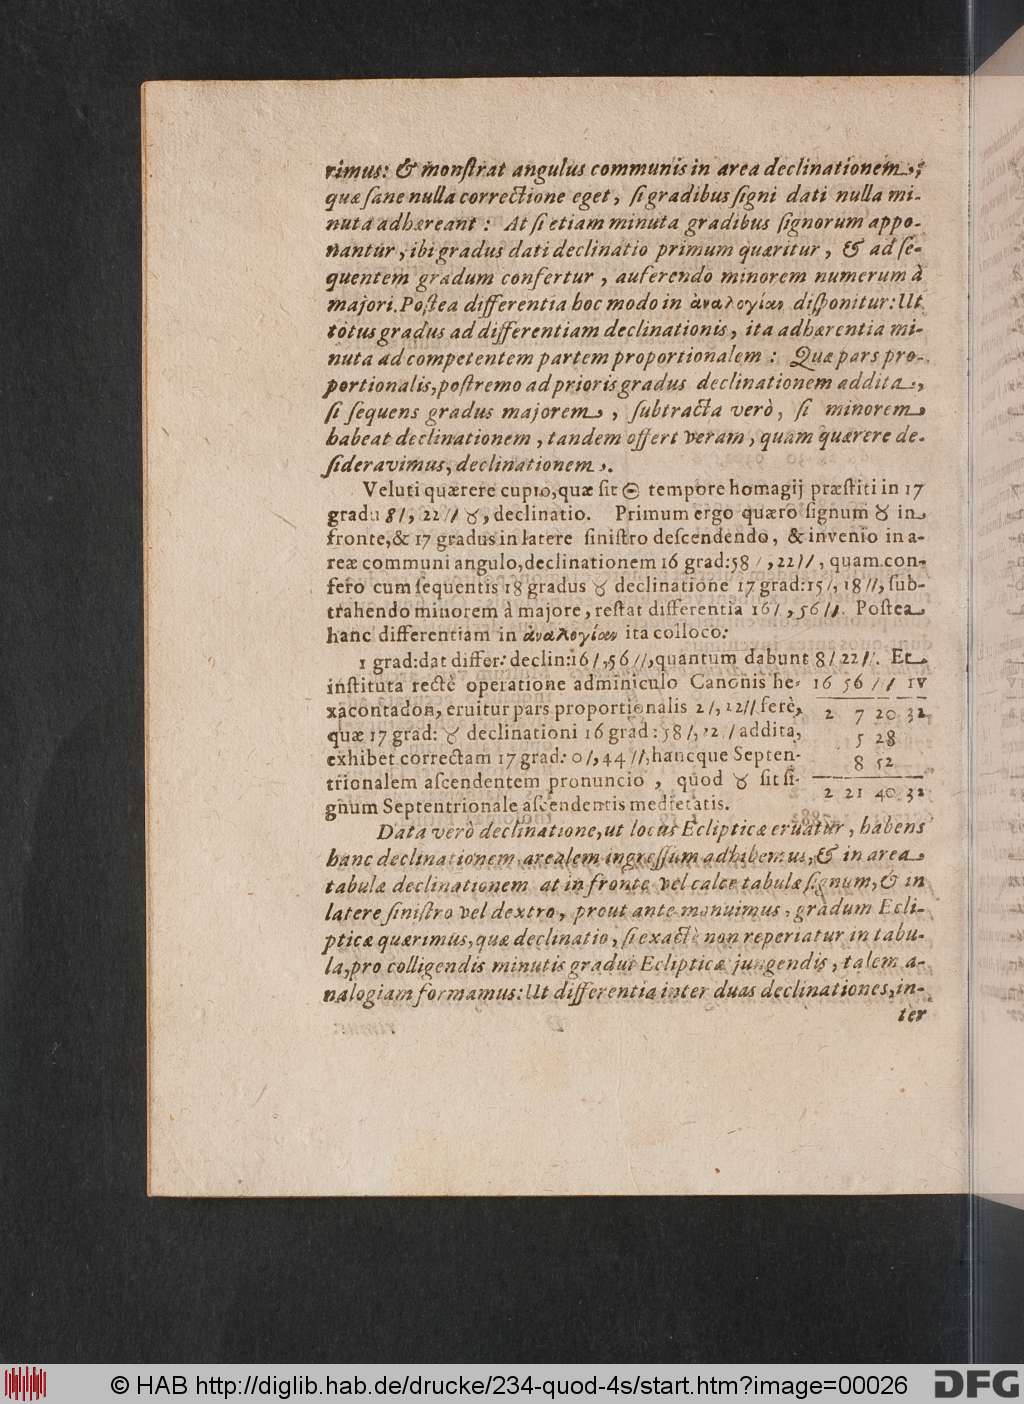 rimus: & monſtrat angulus communis in area declinationem,
quæ ſane nulla correctione eget, ſi gradibus ſigni dati nulla mi-
nuta adhæreant: At ſi etiam minuta gradibus ſignorum appo-
nantur, ibi gradus dati declinatio primum quæritur, & ad ſe-
quentem gradum confertur, auferendo minorem numerum à
majori. Poſtea differentia hoc modo in ἀναλογίαν diſponitur: Ut
totus gradus ad differentiam declinationis, ita adhærentia mi-
nuta ad competentem partem proportionalem: Quæ pars pro-
portionalis, poſtremo ad prioris gradus declinationem addita,
ſi ſequens gradus majorem, ſubtracta verò, ſi minorem
habeat declinationem, tandem offert veram, quam quærere de-
ſideravimus, declinationem.
Veluti quærere cupio, quæ ſit ☉ tempore homagij præſtiti in 17
gradu 8/, 22// ♉, declinatio. Primum ergo quæro ſignum ♉ in
fronte, & 17 gradus in latere ſiniſtro deſcendendo, & invenio in a-
reæ communi angulo, declinationem 16 grad: 58/, 22//, quam con-
fero cum ſequentis 18 gradus ♉ declinatione 17 grad: 15/, 18//, ſub-
trahendo minorem à majore, reſtat differentia 16/, 56//. Poſtea
hanc differentiam in ἀναλογίαν ita colloco:
1 grad: dat differ: declin: 16/, 56//, quantum dabunt 8/ 22//. Et
inſtituta rectè operatione adminiculo Canonis he- 16 56 // IV
xacontadon, eruitur pars proportionalis 2/, 22// ferè, 2 7 20 32
quæ 17 grad: ♉ declinationi 16 grad: 58/, 22 / addita, 5 28
exhibet correctam 17 grad: 0/, 44//, hancque Septen- 8 52
trionalem aſcendentem pronuncio, quod ♉ ſit ſi-
gnum Septentrionale aſcendentis medietatis. 2 21 40 32
Data verò declinatione, ut locus Eclipticæ eruatur, habens
hanc declinationem arealem ingreſſum adhibemus, & in area
tabulæ declinationem at in fronte vel calce tabulæ ſignum, & in
latere ſiniſtro vel dextro, prout ante monuimus, gradum Ecli-
pticæ quærimus, quæ declinatio, ſi exactè non reperiatur in tabu-
la, pro colligendis minutis gradui Eclipticæ jungendis, talem a-
nalogiam formamus: Ut differentia inter duas declinationes, in-
ter
© HAB http://diglib.hab.de/drucke/234-quod-4s/start.htm?image=00026
DFG